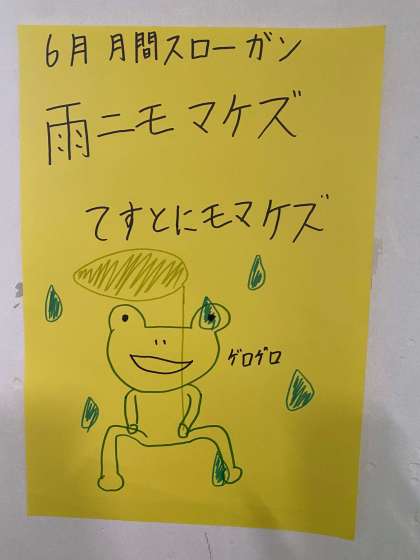 6月 月間スローガン
雨ニモマケズ
てすとにモマケズ
ゲロゲロ